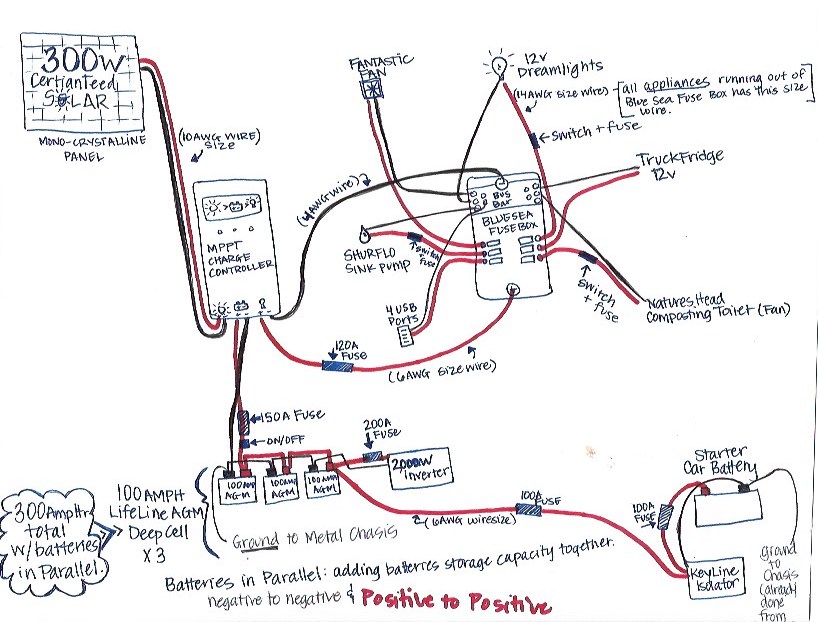 300W
CertianTeed
SOLAR
MONO-CRYSTALLINE
PANEL
(10AWG WIRE)
SIZE
MPPT
CHARGE
CONTROLLER
FANTASTIC
FAN
12V
Dreamlights
(14AWG SIZE WIRE)
all appliances running out of
Blue Sea Fuse Box has this size
wire.
switch + fuse
TruckFridge
12v
(4AWG wire)
BUS
Bar
BLUESEA
FUSEBOX
SHURFLO
SINK PUMP
switch
+
fuse
switch
+ fuse
Natures Head
Composting Toilet (Fan)
4 USB
Ports
120A
FUSE
(6AWG size wire)
150A Fuse
ON/OFF
200A
Fuse
2000W
inverter
100AMP
AGM
100AMP
AGM
100AMP
AGM
300 AmpHr
total
w/batteries
in Parallel.
100 AMPH
LifeLine AGM
Deep Cell
X 3
Ground to Metal Chasis
(6AWG wiresize)
100A
FUSE
Starter
Car Battery
100A
FUSE
KeyLine
Isolator
ground
to
chasis
(already
done
from
Batteries in Parallel: adding batteries storage capacity together.
negative to negative & Positive to Positive